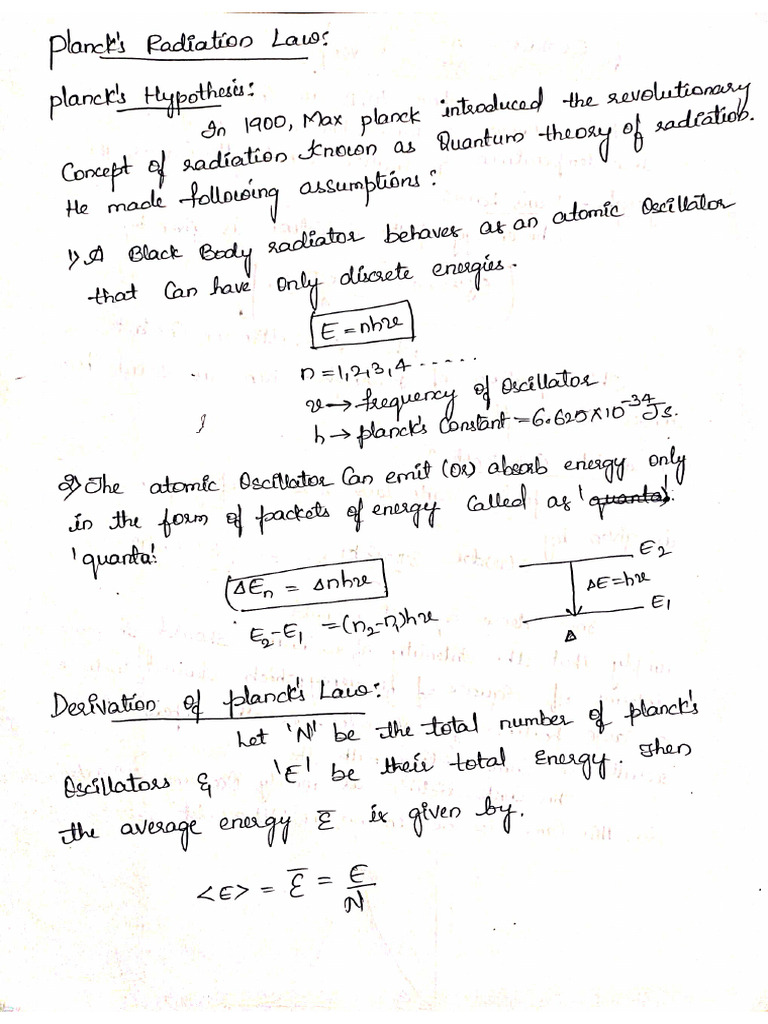 Planck's Radiation Law:
planck's Hypothesis:
In 1900, Max planck introduced the revolutionary
Concept of radiation known as Quantum theory of radiation.
He made following assumptions:
1) A Black Body radiator behaves as an atomic Oscillator
that can have only discrete energies.
E = nhν
n = 1,2,3,4 ......
ν → frequency of Oscillator.
h → planck's Constant = 6.625×10⁻³⁴ Js.
2) The atomic Oscillator Can emit (or) absorb energy only
in the form of packets of energy called as 'quanta'.
'quanta'
ΔEn = Δnhν
E2-E1 = (n2-n1)hν
E2
ΔE=hν
E1
Derivation of planck's Law:
Let 'N' be the total number of planck's
Oscillators & 'E' be their total Energy. Then
the average energy Ē is given by.
<E> = Ē = E/N